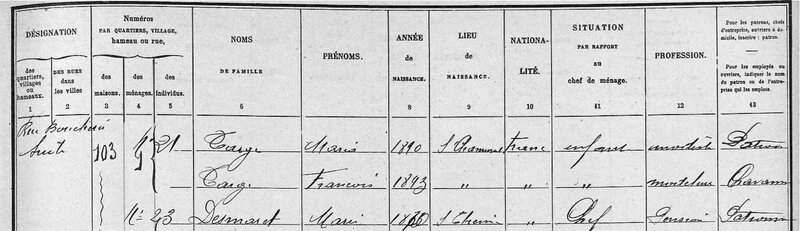 DÉSIGNATION
Numéros
PAR QUARTIERS, VILLAGE,
hameau ou rue,
NOMS
DE FAMILLE
PRÉNOMS.
ANNÉE
de
NAISSANCE.
LIEU
de
NAISSANCE.
NATIONA-
LITÉ.
SITUATION
PAR RAPPORT
au
chef de ménage.
PROFESSION.
Pour les patrons, chefs
d'entreprise, ouvriers à do-
micile, inscrire : patron.
Pour les employés ou
ouvriers, indiquer le nom
du patron ou de l'entre-
prise qui les emploie.
des
quartiers,
villages
ou
hameaux.
DES RUES
dans
les villes
des
maisons.
des
ménages.
des
individus.
1 2 3 4 5 6 7 8 9 10 11 12 13
Rue
Suite 103 21 Targe Marie 1890 St Chamond Franc enfant modiste Patron
Targe François 1893 〃 〃 〃 Chavann
Desmaret Marie St 〃 Chef